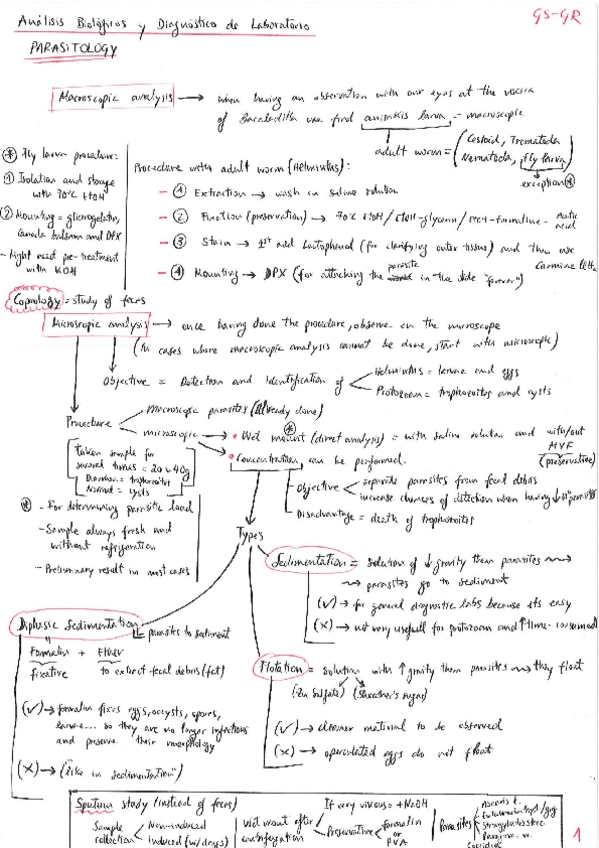 Análisis Biológicos y Diagnóstico de Laboratorio
GS-GR
PARASITOLOGY
Macroscopic analysis → when having an observation with our eyes at the
of we find anisakis larva - macroscopic
adult worm = (Cestoid, Trematoda
Nematoda, Fly larva)
exception *
* Fly larva procedure:
① Isolation and storage
with 70% EtOH
② Mounting = glicerogelatin,
canada balsam and DPX
- Might need pre-treatment
with KOH
Procedure with adult worm (Helminths):
- ① Extraction → wash in saline solution
- ② Fixation (preservation) → 70% EtOH / EtOH-glycerin / EtOH-formaline-Acetic acid
- ③ Stain → 1st add Lactophenol (for clarifying outer tissue) and then use
Carmine
- ④ Mounting → DPX (for attaching the parasite in the slide "forever")
Coprology = study of feces
Microscopic analysis → once having done the procedure, observe on the microscope
(In cases where macroscopic analysis cannot be done, start with microscopic)
Objective = Detection and identification of
Helminths = larvae and eggs
Protozoan = trophozoites and cysts
Procedure
Macroscopic parasites (already done)
microscopic
* Wet mount (direct analysis) = with saline solution and with/out
MIF
(preservative)
Concentration can be performed.
Taken sample for
several times = 20 - 40g
Diarrhea = trophozoites
Normal = cysts
Objective
separate parasites from fecal debris
increase chances of detection when having ↓nº parasites
Disadvantage = death of trophozoites
* - For determining parasitic load
- Sample always fresh and
without refrigeration
- Preliminary result in most cases
Types
Sedimentation = solution of ↓ gravity than parasites
parasites go to sediment
(✓) → for general diagnostic labs because its easy
(X) → not very usefull for protozoan and ↑ time-consumed
Diphasic Sedimentation
parasites to sediment
Formalin + Ether
fixative to extract fecal debris (fat)
(✓) → formalin fixes eggs, oocysts, spores,
larvae... so they are no longer infectious
and preserve their morphology
(X) → ("like in sedimentation")
Flotation = solution with ↑ gravity than parasites → they float
(Zn Sulfate) (Sheather's sugar)
(✓) → cleaner material to be observed
(X) → operculated eggs do not float
Sputum study (instead of feces)
Sample
collection
Non-induced
induced (w/drugs)
Wet mount after
centrifugation
If very viscous = + NaOH
Preservative
formalin
or
PVA
Parasites
Ascaris l.
Strongyloides
Paragonimus w.
1